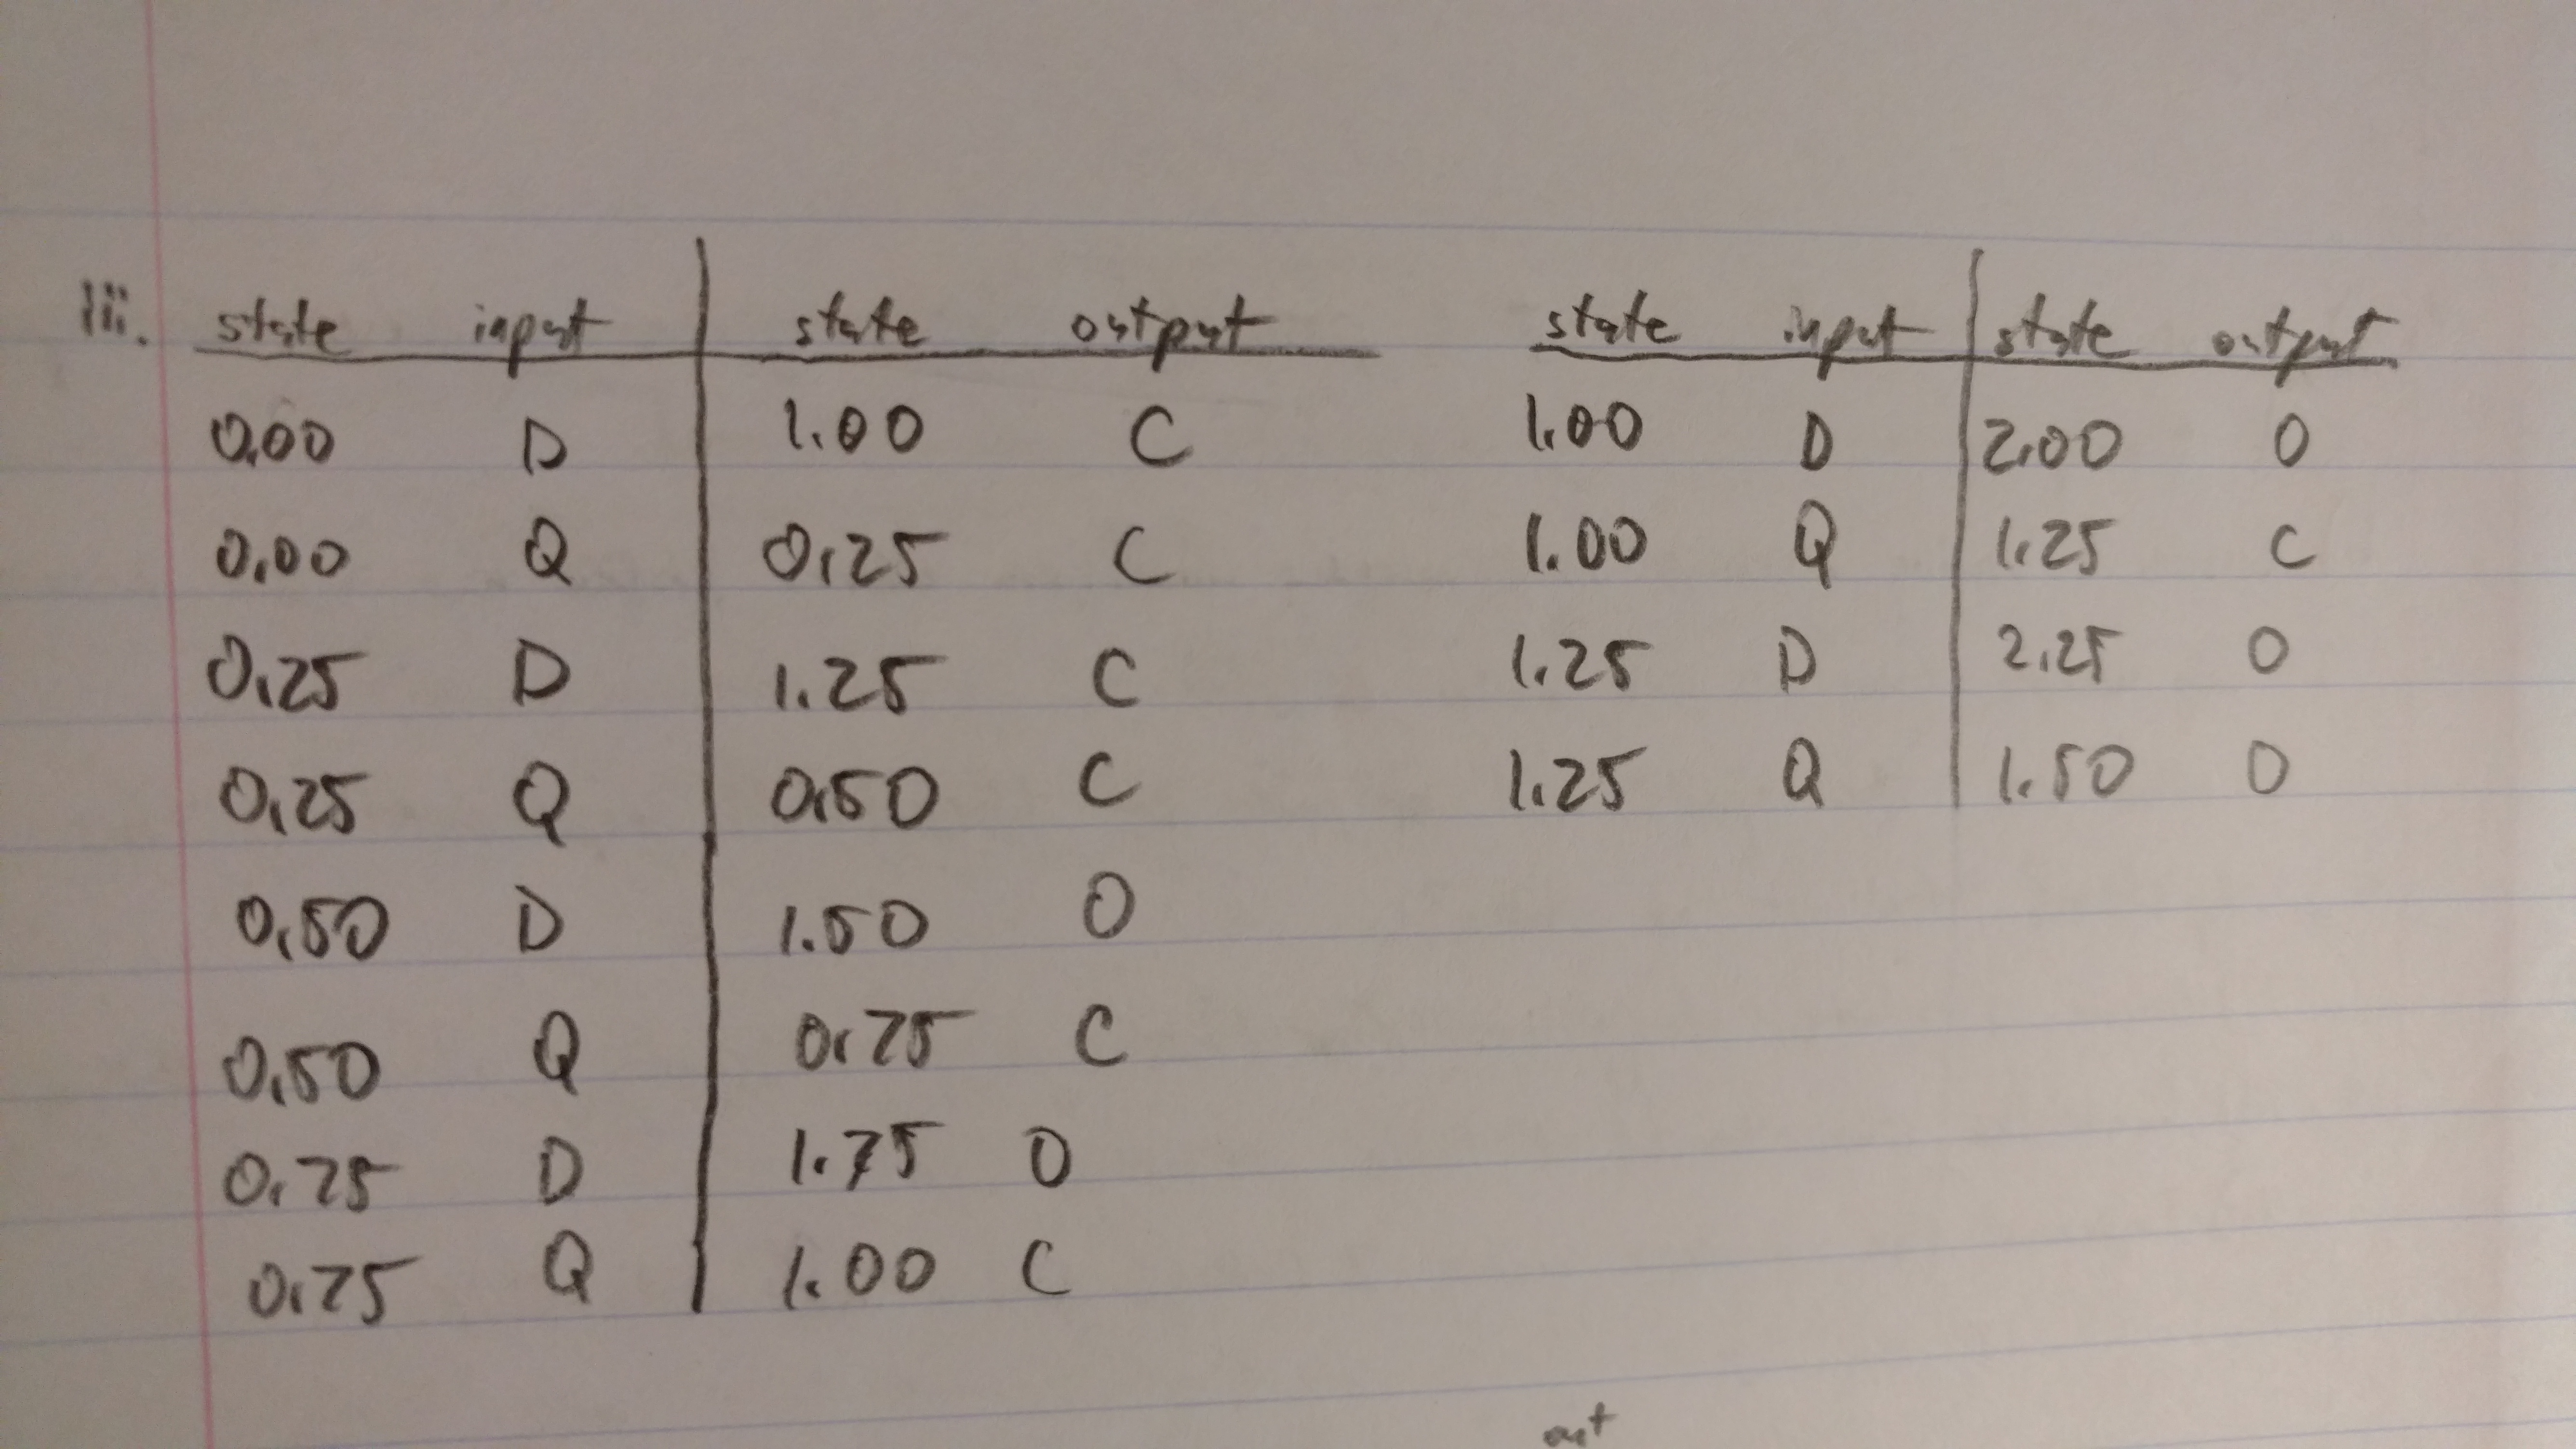 iii. state input state output
0.00 D 1.00 C
0.00 Q 0.25 C
0.25 D 1.25 C
0.25 Q 0.50 C
0.50 D 1.50 O
0.50 Q 0.75 C
0.75 D 1.75 O
0.75 Q 1.00 C
state input state output
1.00 D 2.00 O
1.00 Q 1.25 C
1.25 D 2.25 O
1.25 Q 1.50 O
out